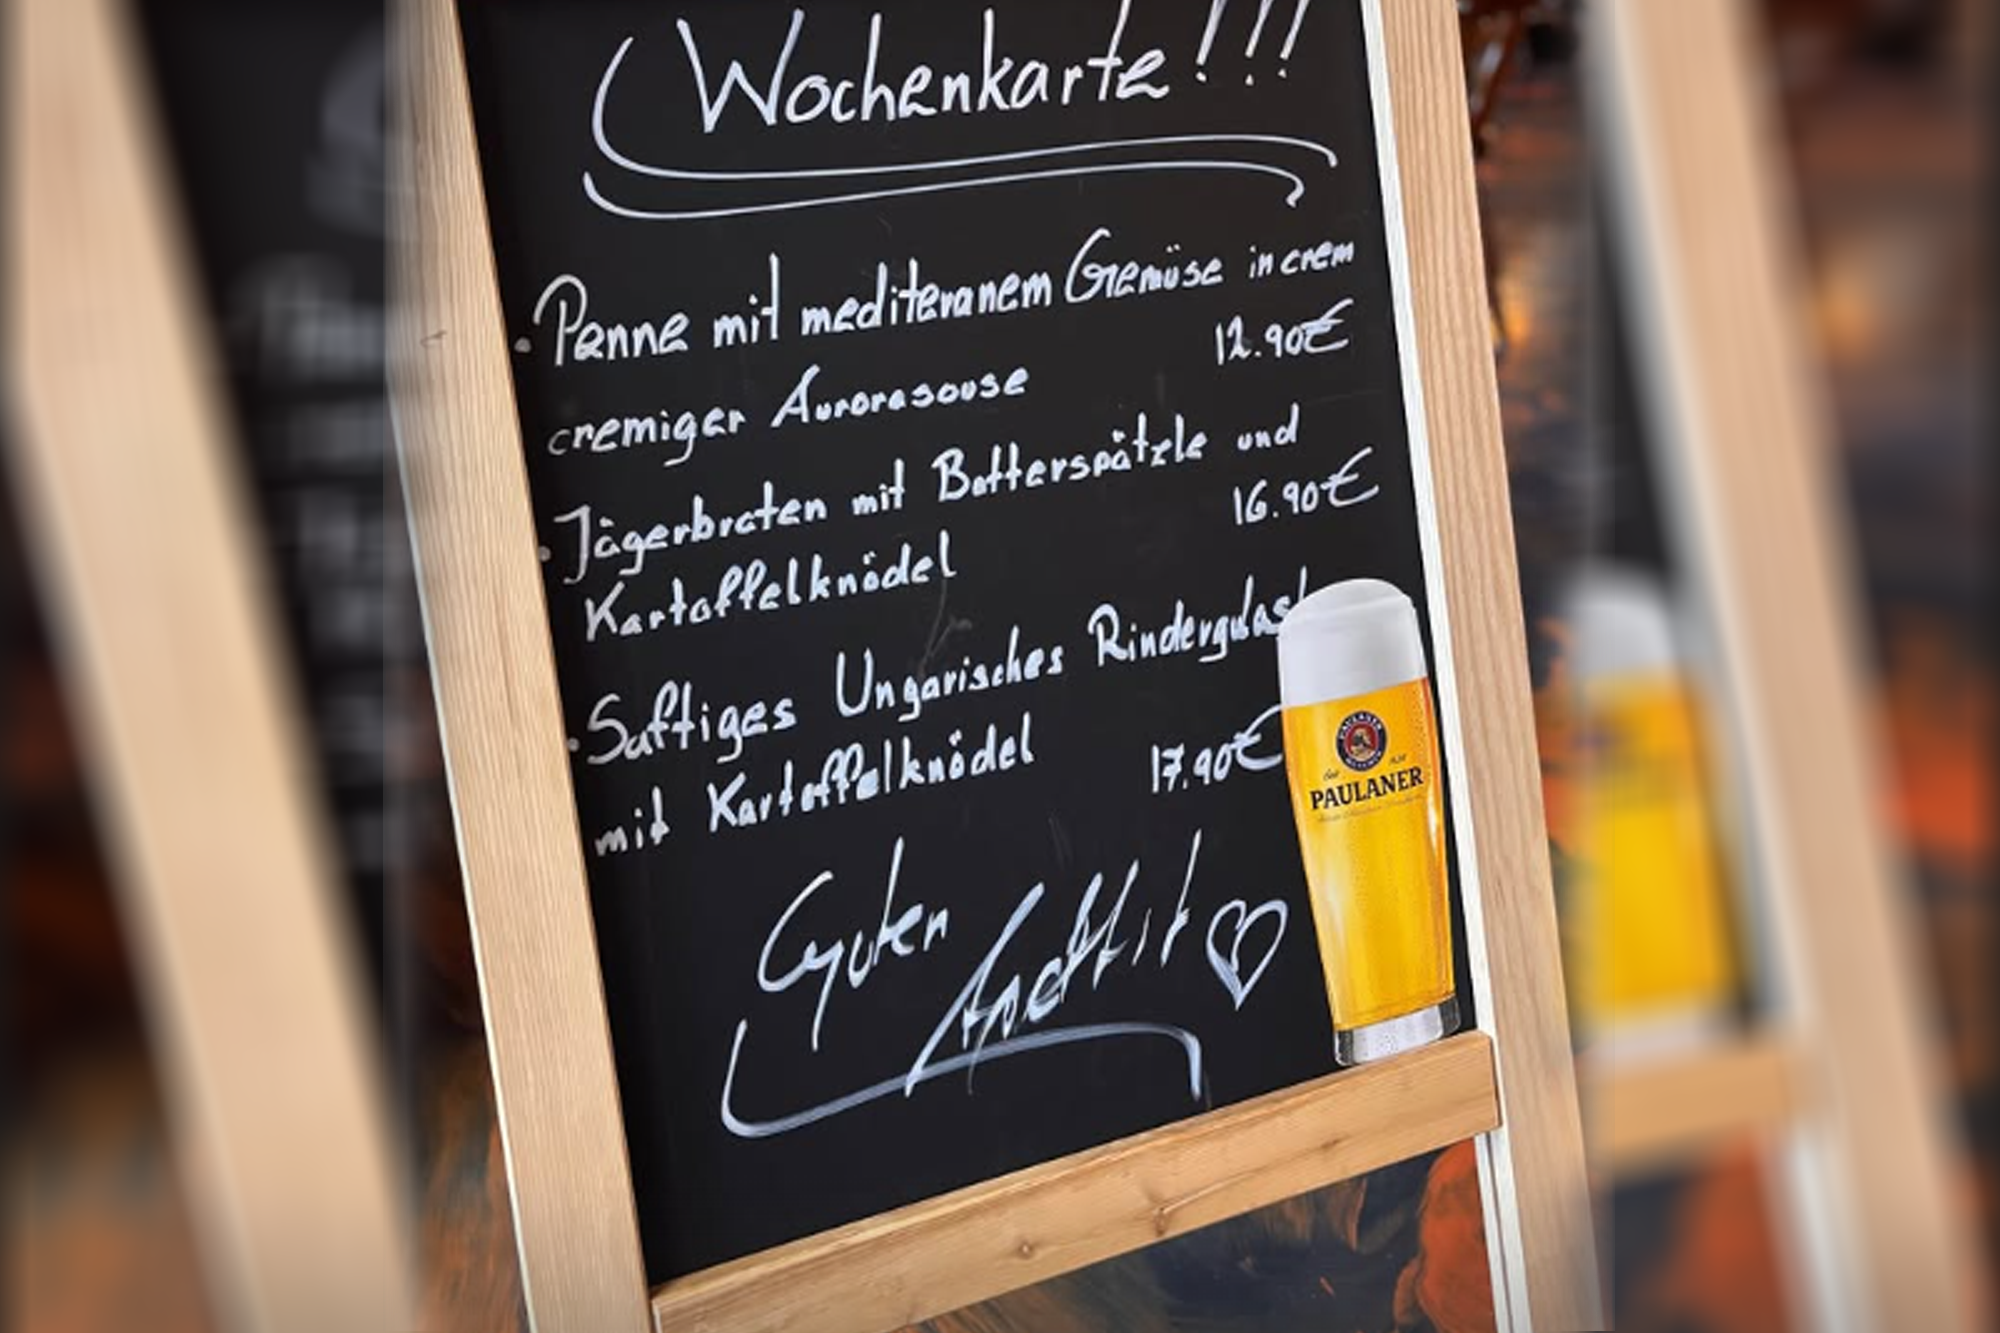 Wochenkarte!!!
• Penne mit mediteranem Gemüse in crem
12.90€
cremiger Aurorasouse
• Jägerbraten mit Butterspätzle und
16.90€
Kartoffelknödel
• Saftiges Ungarisches Rindergulash
mit Kartoffelknödel 17.90€
Guten
Apettit
PAULANER